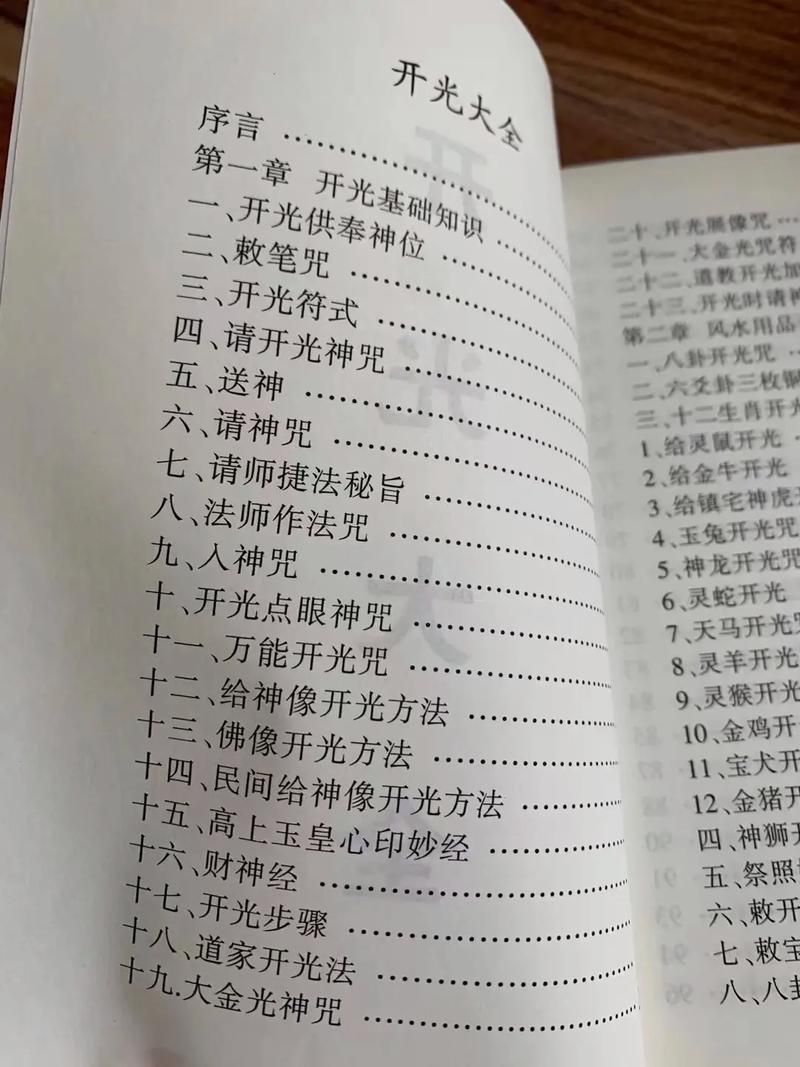 开光大全
序言 ……………
第一章 开光基础知识 ……
一、开光供奉神位 ……
二、敕笔咒 ……………
三、开光符式 …………
四、请开光神咒 ………
五、送神 ………………
六、请神咒 ……………
七、请师捷法秘旨 ……
八、法师作法咒 ………
九、入神咒 ……………
十、开光点眼神咒 ……
十一、万能开光咒 ……
十二、给神像开光方法 ……
十三、佛像开光方法 ……
十四、民间给神像开光方法 ……
十五、高上玉皇心印妙经 ……
十六、财神经 …………
十七、开光步骤 ………
十八、道家开光法 ……
十九.大金光神咒 ……
二十、开光展像咒 …
二十一、大金光咒符
二十二、道教开光加
二十三、开光时请神
第二章 风水用品
一、八卦开光咒 …
二、六爻卦三枚铜
三、十二生肖开光
1、给灵鼠开光
2、给金牛开光
3、给镇宅神虎开
4、玉兔开光咒
5、神龙开光咒
6、灵蛇开光
7、天马开光咒
8、灵羊开光
9、灵猴开光
10、金鸡开
11、宝犬开
12、金猪开
四、神狮开
五、祭照
六、敕开
七、敕宝
八、八卦